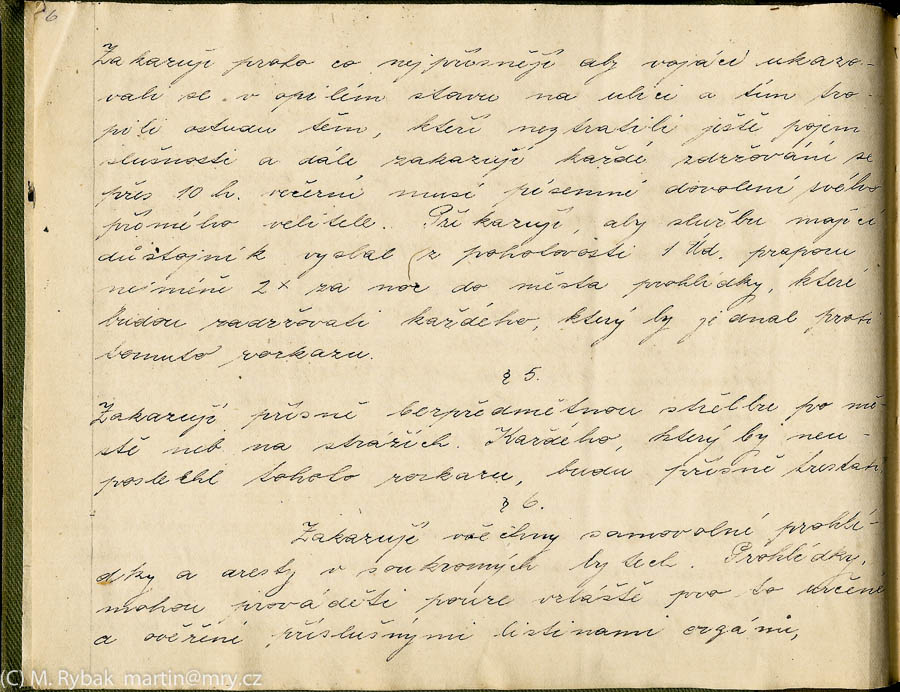 76
Zakazuji proto co nejpřísněji aby vojáci ukazo-
vali se v opilím stavu na ulici a tím tro-
pili ostudu těm, kteří neztratili ještě pojem
slušnosti a dále zakazuji každé zdržování se
přes 10 h. večerní musí písemné dovolení svého
přímého velitele. Přikazuji, aby službu mající
důstojník vyslal (z pohotovosti 1 Úd. praporu
nejméně 2x za noc do města prohlídky, které
budou zadržovati každého, který by jednal proti
tomuto rozkazu.
§ 5.
Zakazuji přísně bezpředmětnou střelbu po mě-
stě neb na strážích. Každého, který by neu-
poslechl tohoto rozkazu, budu přísně trestati
§ 6.
Zakazuji všechny samovolné prohlí-
dky a aresty v soukromých bytech. Prohlídky,
mohou prováděti pouze vzláště pro to určené
a ověření příslušnými listinami orgáni,
(C) M. Rybak martin@mry.cz